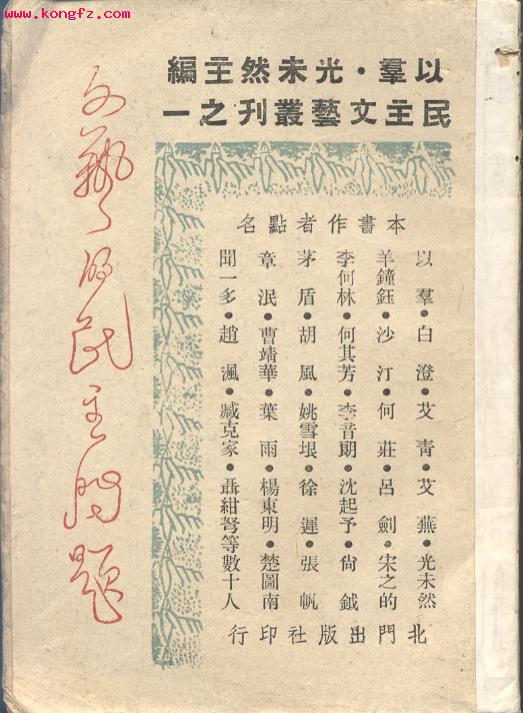 www.kongfz.com
以羣·光未然主編
民主文藝叢刊之一
本書作者點名
以羣●白澄●艾青●艾燕●光未然
羊鐘鈺●沙汀●何莊●呂劍●宋之的
李何林●何其芳●李音期●沈起予●尙鉞
茅盾●胡風●姚雪垠●徐遲●張帆
章泯●曹靖華●葉雨●楊東明●楚圖南
聞一多●趙渢●臧克家●聶紺弩等數十人
北門出版社印行
文藝的民主問題